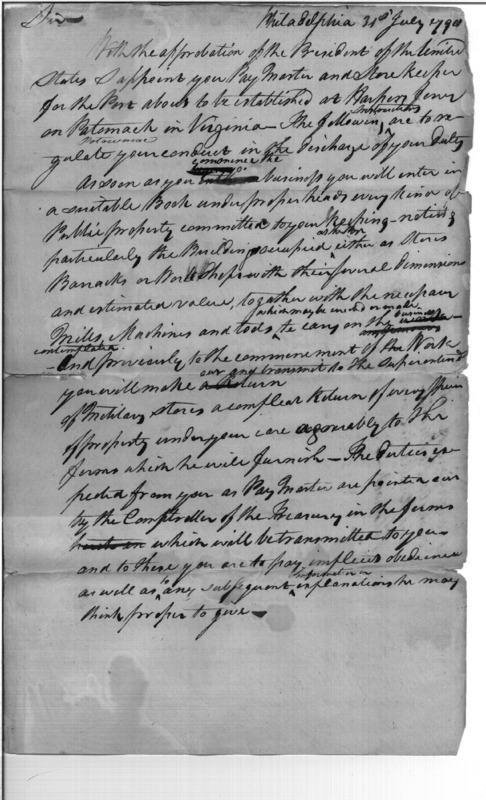 Sir Philadelphia 31st July 1798
With the approbation of the President of the United
States I appoint you Pay Master and Store Keeper
for the Post about to be established at Harpers ferry
on Potomack in Virginia — The following instructions are to re-
gulate your conduct in the discharge of your duty
As soon as you commence the business you will enter in
a suitable Book under proper heads every kind of
Public property committed to your keeping — noticing
particularly the Buildings occupied either as Stores
Barracks or Work Shops with their several dimensions
and estimated value, together with the necessary
which may be
Mills, Machines and tools to carry on the business
contemplated
— And previously to the commencement of the Work
you will make out and transmit to the Superintend
of Military stores a compleat Return of every species
of property under your care agreeably to the
forms which he will furnish — The duties ex-
pected from you as Pay Master are pointed out
by the Comptroller of the Treasury in the forms
which will be transmitted to you —
and to these you are to pay implicit obedience
as well as to any subsequent explanations he may
think proper to give —